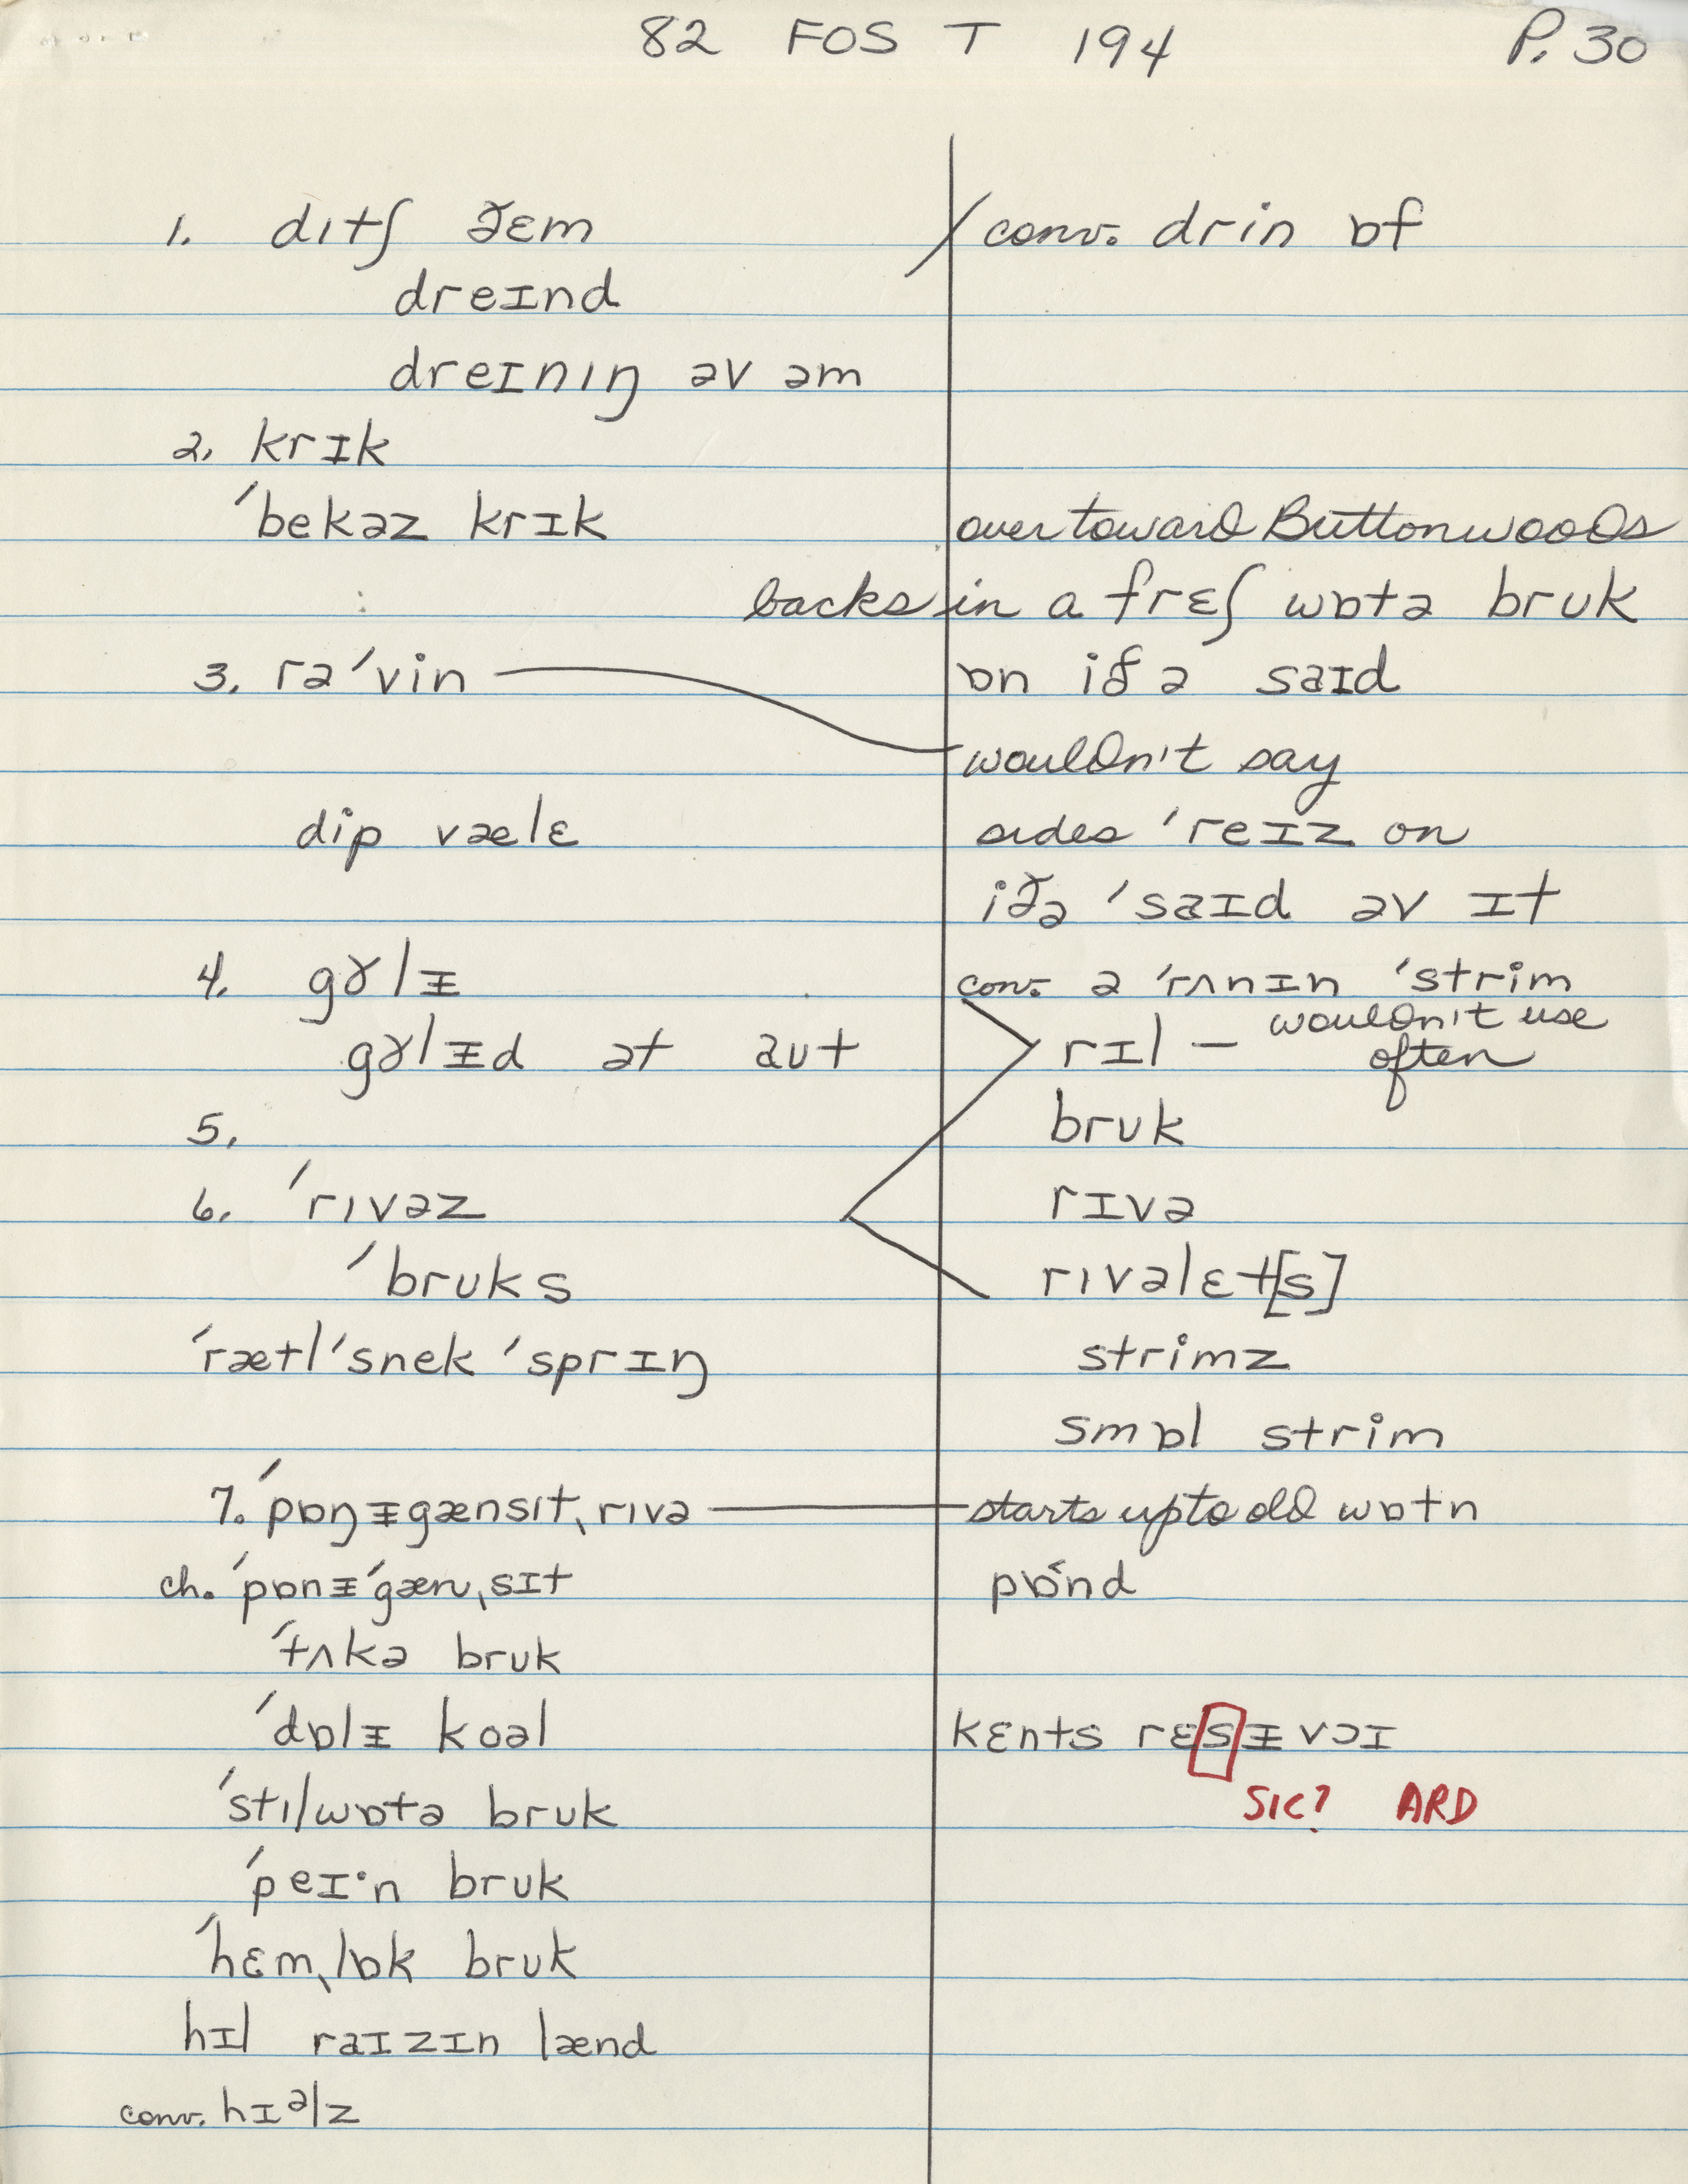 82 FOS T 194 P. 30
1. dɪtʃ ðɛm / conv. drin ɒf
dreɪnd
dreɪnıŋ əv əm
2. krɪk
ˈbekəz krɪk over toward Buttonwoods
backs in a frɛʃ wɒtə bruk
3. rəˈvin ɒn iðə saɪd
wouldn't say
dip vælɛ sides ˈreɪz on
iðə ˈsaɪd əv ɪt
4. gɤlᵻ conv. ə ˈrʌnɪn ˈstrim
gɤlᵻd ət aut rɪl — wouldn't use often
5. bruk
6. ˈrıvəz rɪvə
ˈbruks rıvəlɛt[s]
ˈrætlˈsnek ˈsprɪŋ strimz
smɒl strim
7. ˈpɒŋᵻgænsıtˌrıvə starts up to old wɒtn
ch. ˈpɒnᵻˈgænˌsɪt pɒnd
ˈtʌkə bruk
ˈdɒlᵻ koəl kɛnts rɛsᵻvɔɪ
SIC? ARD
ˈstılwɒtə bruk
ˈpeɪ·n bruk
ˈhɛmˌlɒk bruk
hɪl raɪzɪn lænd
conv. hɪəlz